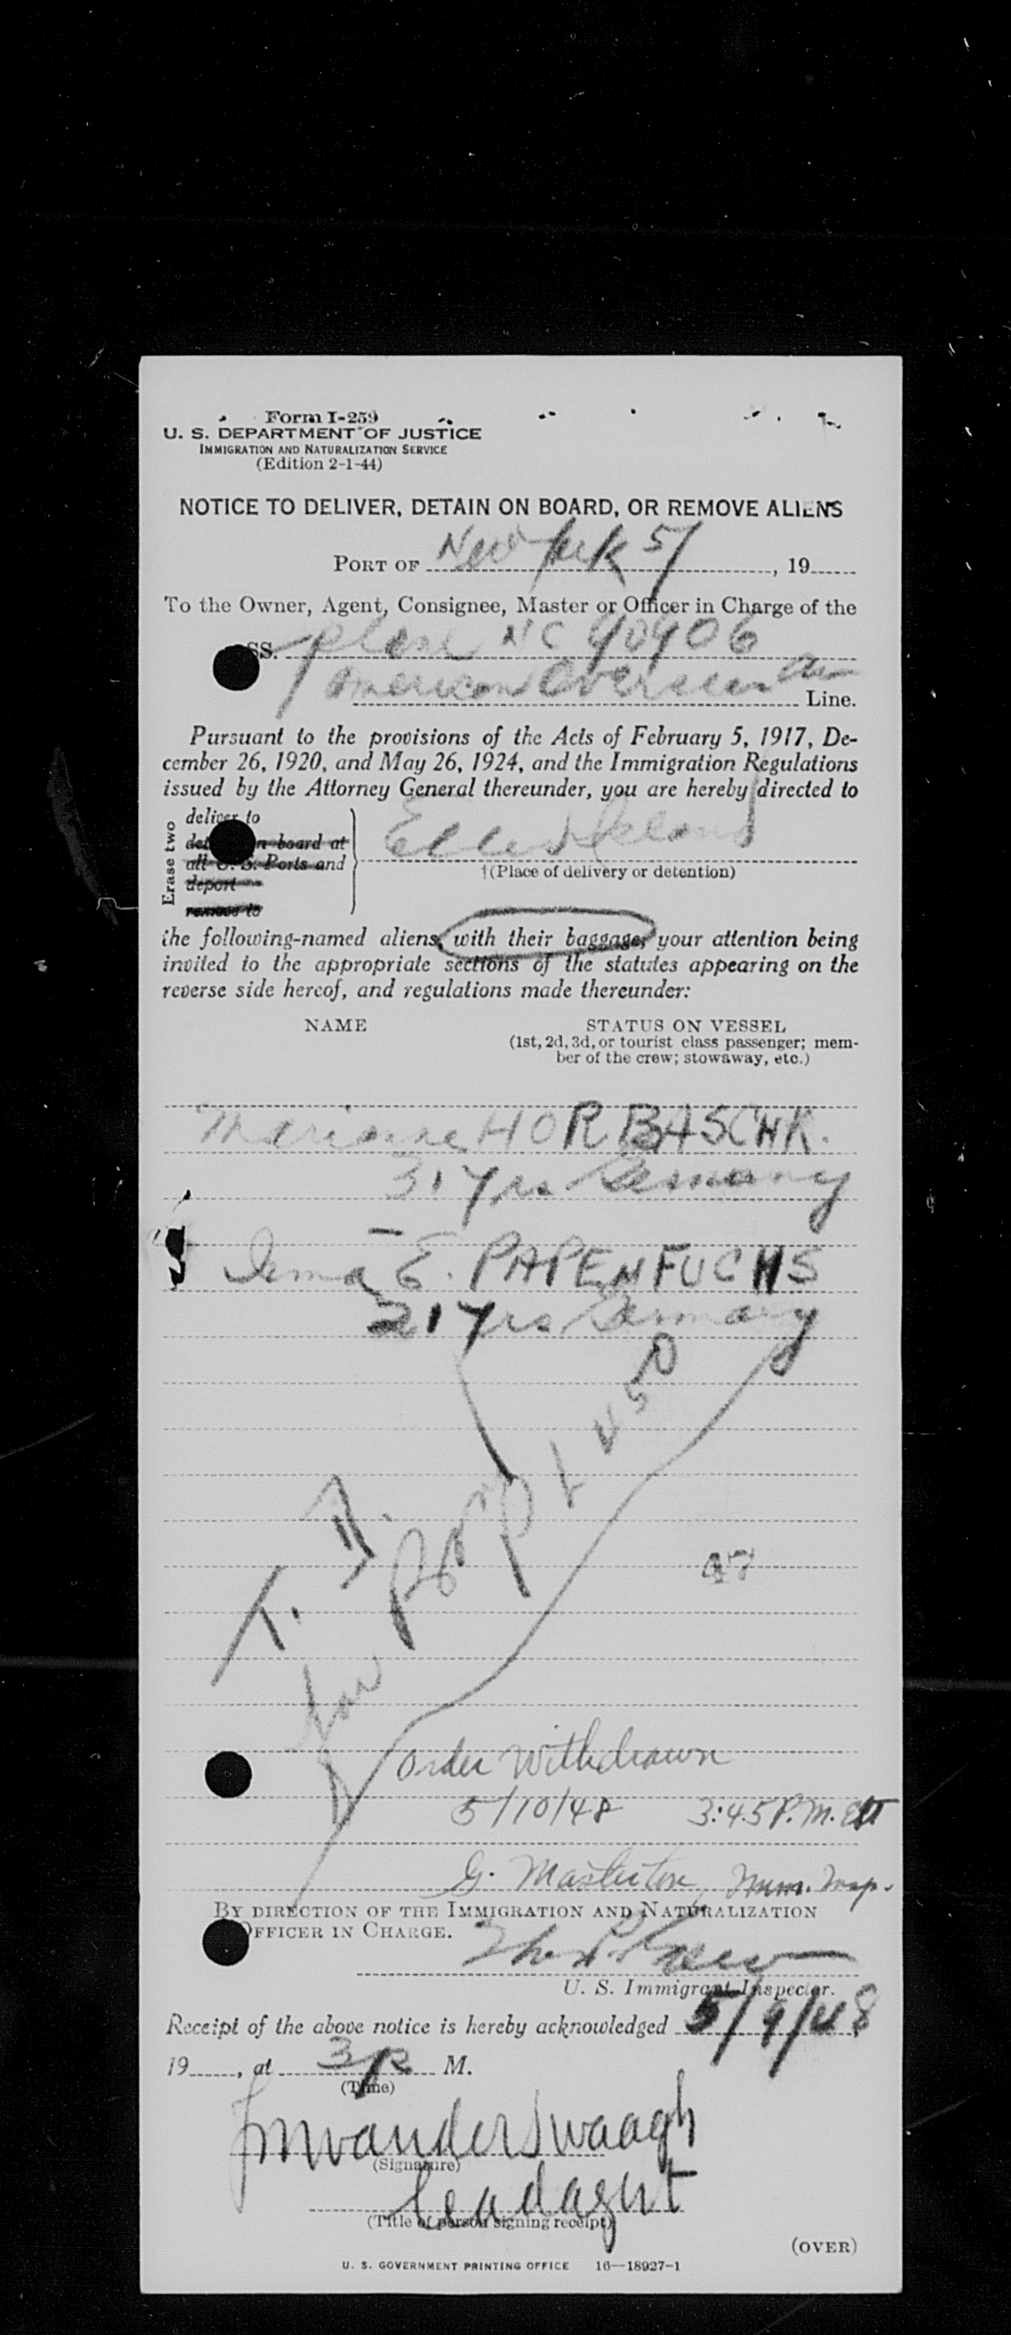 Form I-259
U. S. DEPARTMENT OF JUSTICE
IMMIGRATION AND NATURALIZATION SERVICE
(Edition 2-1-44)
NOTICE TO DELIVER, DETAIN ON BOARD, OR REMOVE ALIENS
PORT OF New York 5/ , 19
To the Owner, Agent, Consignee, Master or Officer in Charge of the
SS. plane NC 90906
American Overseas Air Line.
Pursuant to the provisions of the Acts of February 5, 1917, De-
cember 26, 1920, and May 26, 1924, and the Immigration Regulations
issued by the Attorney General thereunder, you are hereby directed to
Erase two
deliver to
detain on board at
all U. S. Ports and
deport
remove to
Ellis Island
†(Place of delivery or detention)
the following-named aliens, with their baggage, your attention being
invited to the appropriate sections of the statutes appearing on the
reverse side hereof, and regulations made thereunder:
NAME STATUS ON VESSEL
(1st, 2d, 3d, or tourist class passenger; mem-
ber of the crew; stowaway, etc.)
Marianne HORBASCHK.
31 yrs Germany
Irma E. PAPENFUCHS
21 yrs Germany
T. D.
for
47
Order Withdrawn
5/10/48 3:45 P.M.
G. Masterton, Imm. Insp.
BY DIRECTION OF THE IMMIGRATION AND NATURALIZATION
OFFICER IN CHARGE.
U. S. Immigrant Inspector.
Receipt of the above notice is hereby acknowledged 5/9/48
19 , at 3 P M.
(Time)
(Signature)
Leadagnt
(Title of person signing receipt)
(OVER)
U. S. GOVERNMENT PRINTING OFFICE 16—18927-1